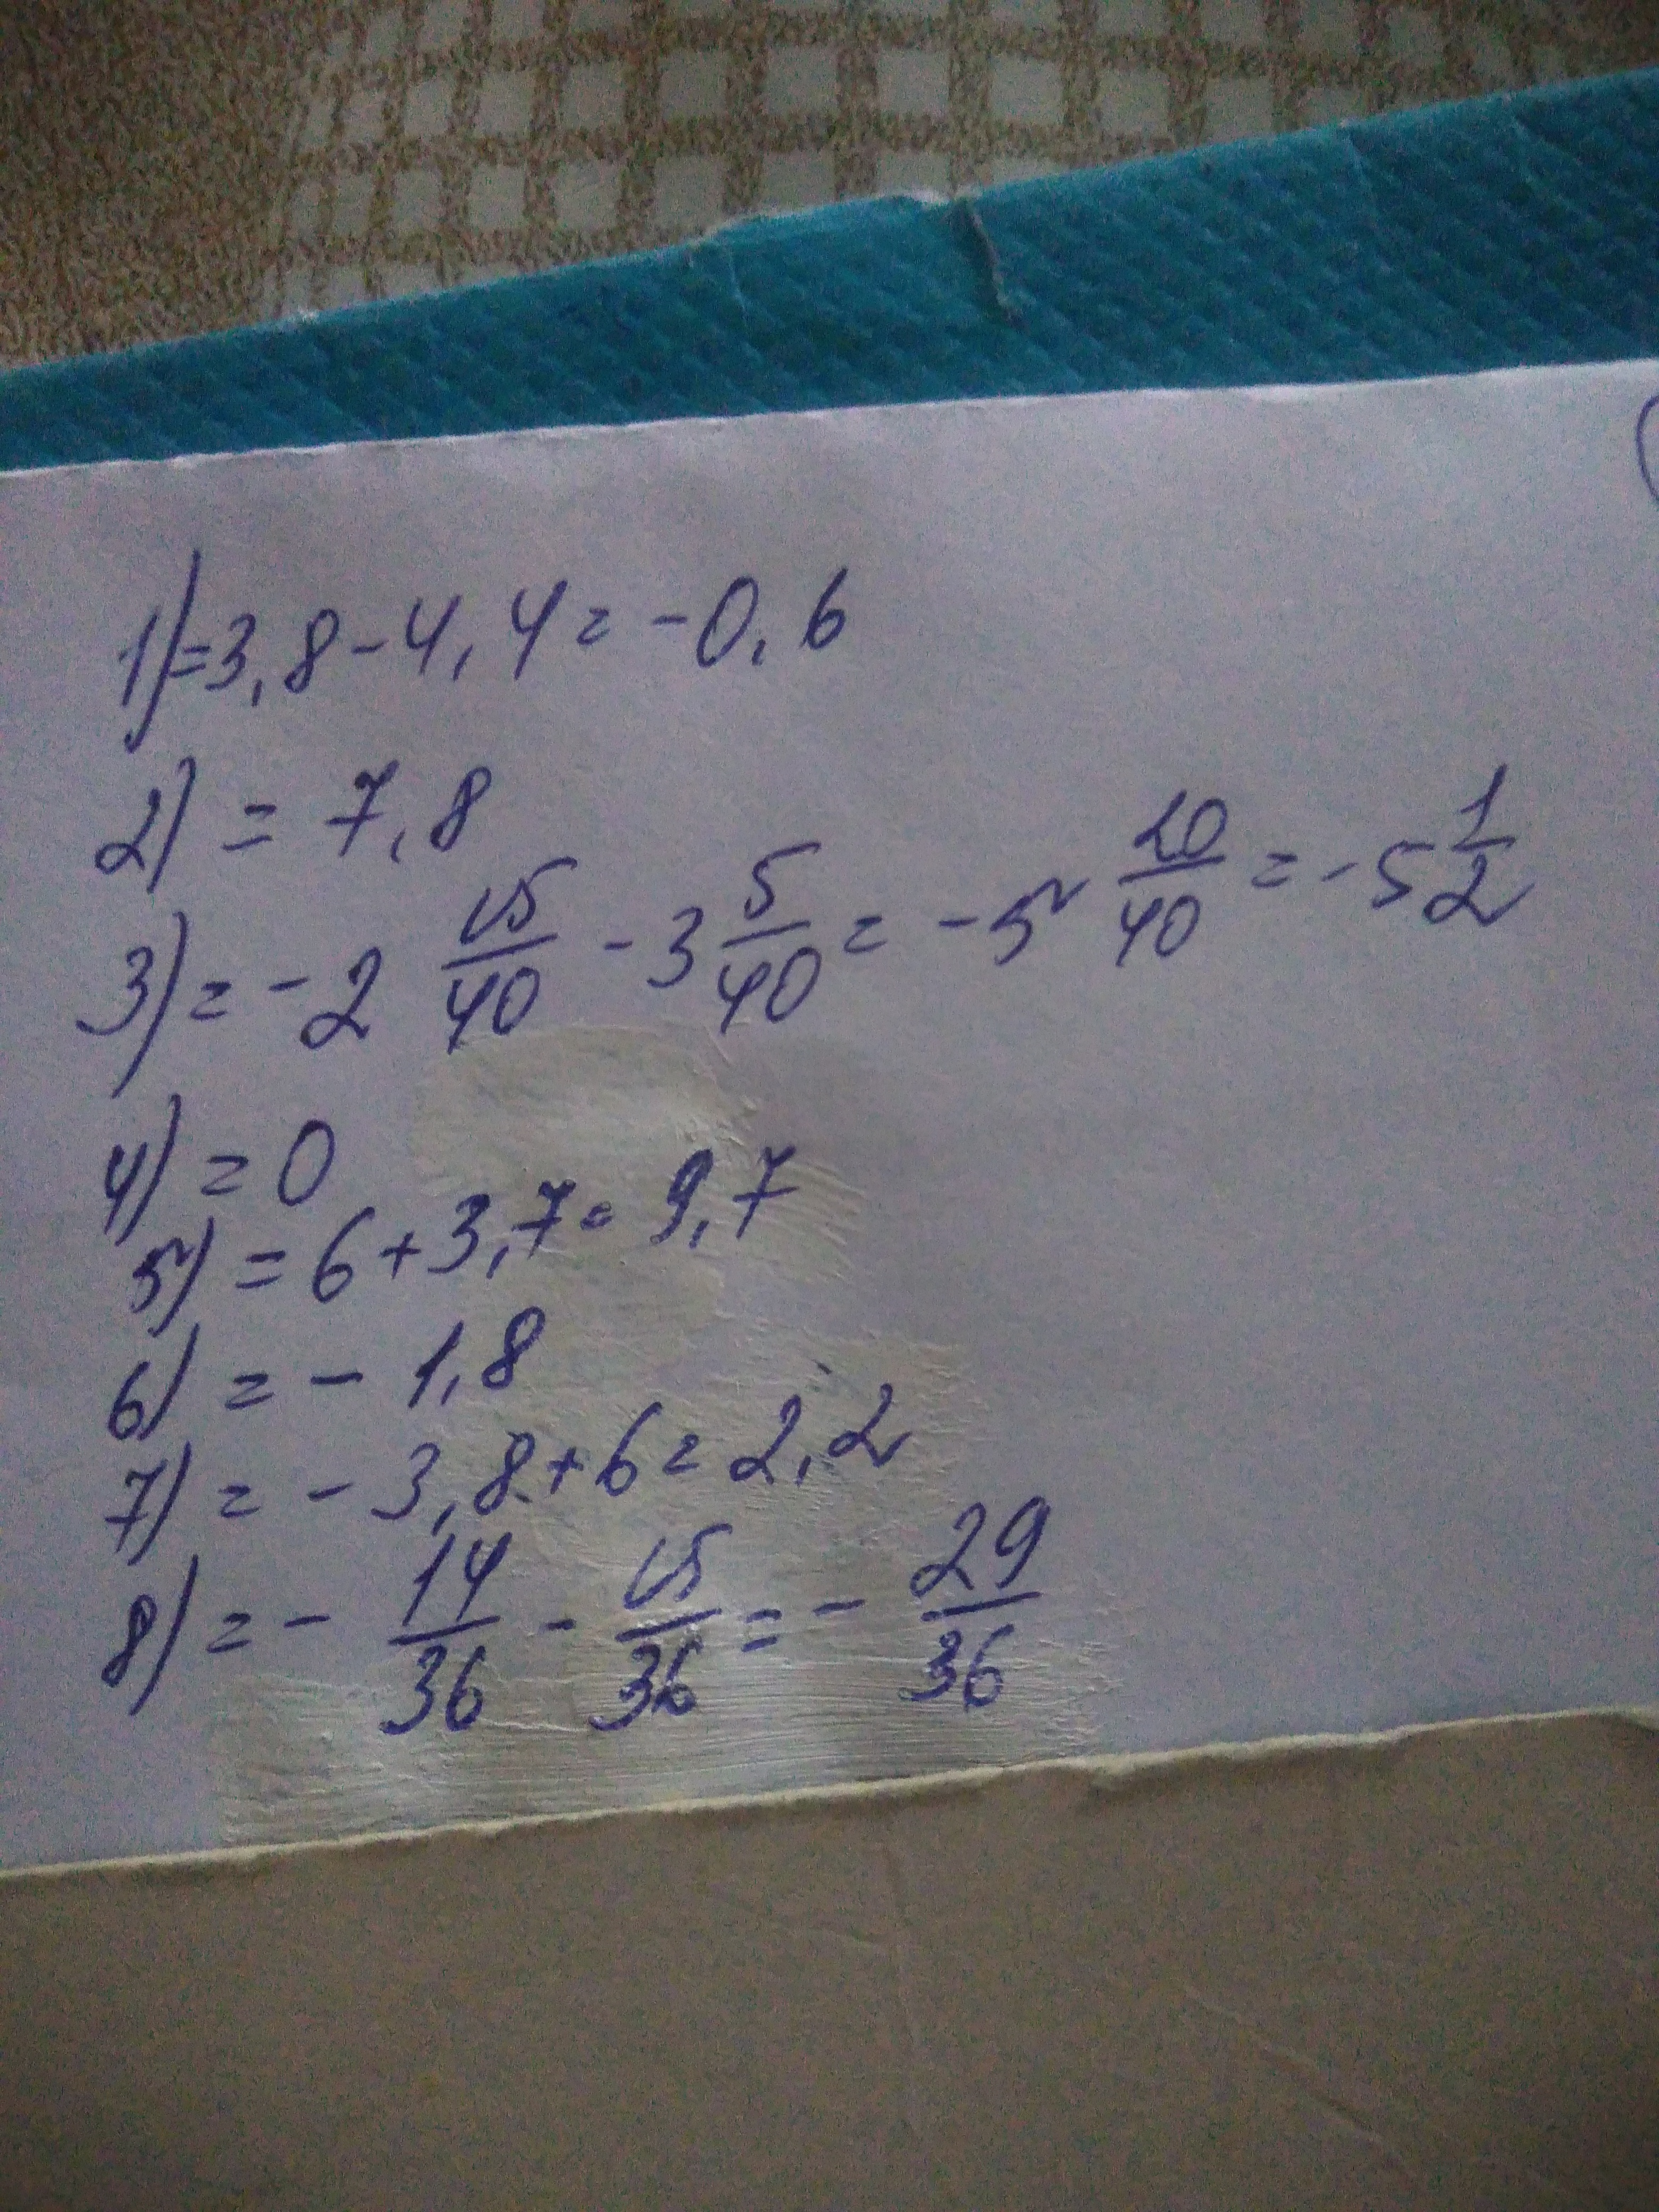 1) = 3,8 - 4,4 = -0,6
2) = 7,8
3) = -2 15/40 - 3 5/40 = -5 20/40 = -5 1/2
4) = 0
5) = 6 + 3,7 = 9,7
6) = - 1,8
7) = - 3,8 + 6 = 2,2
8) = - 14/36 - 15/36 = - 29/36